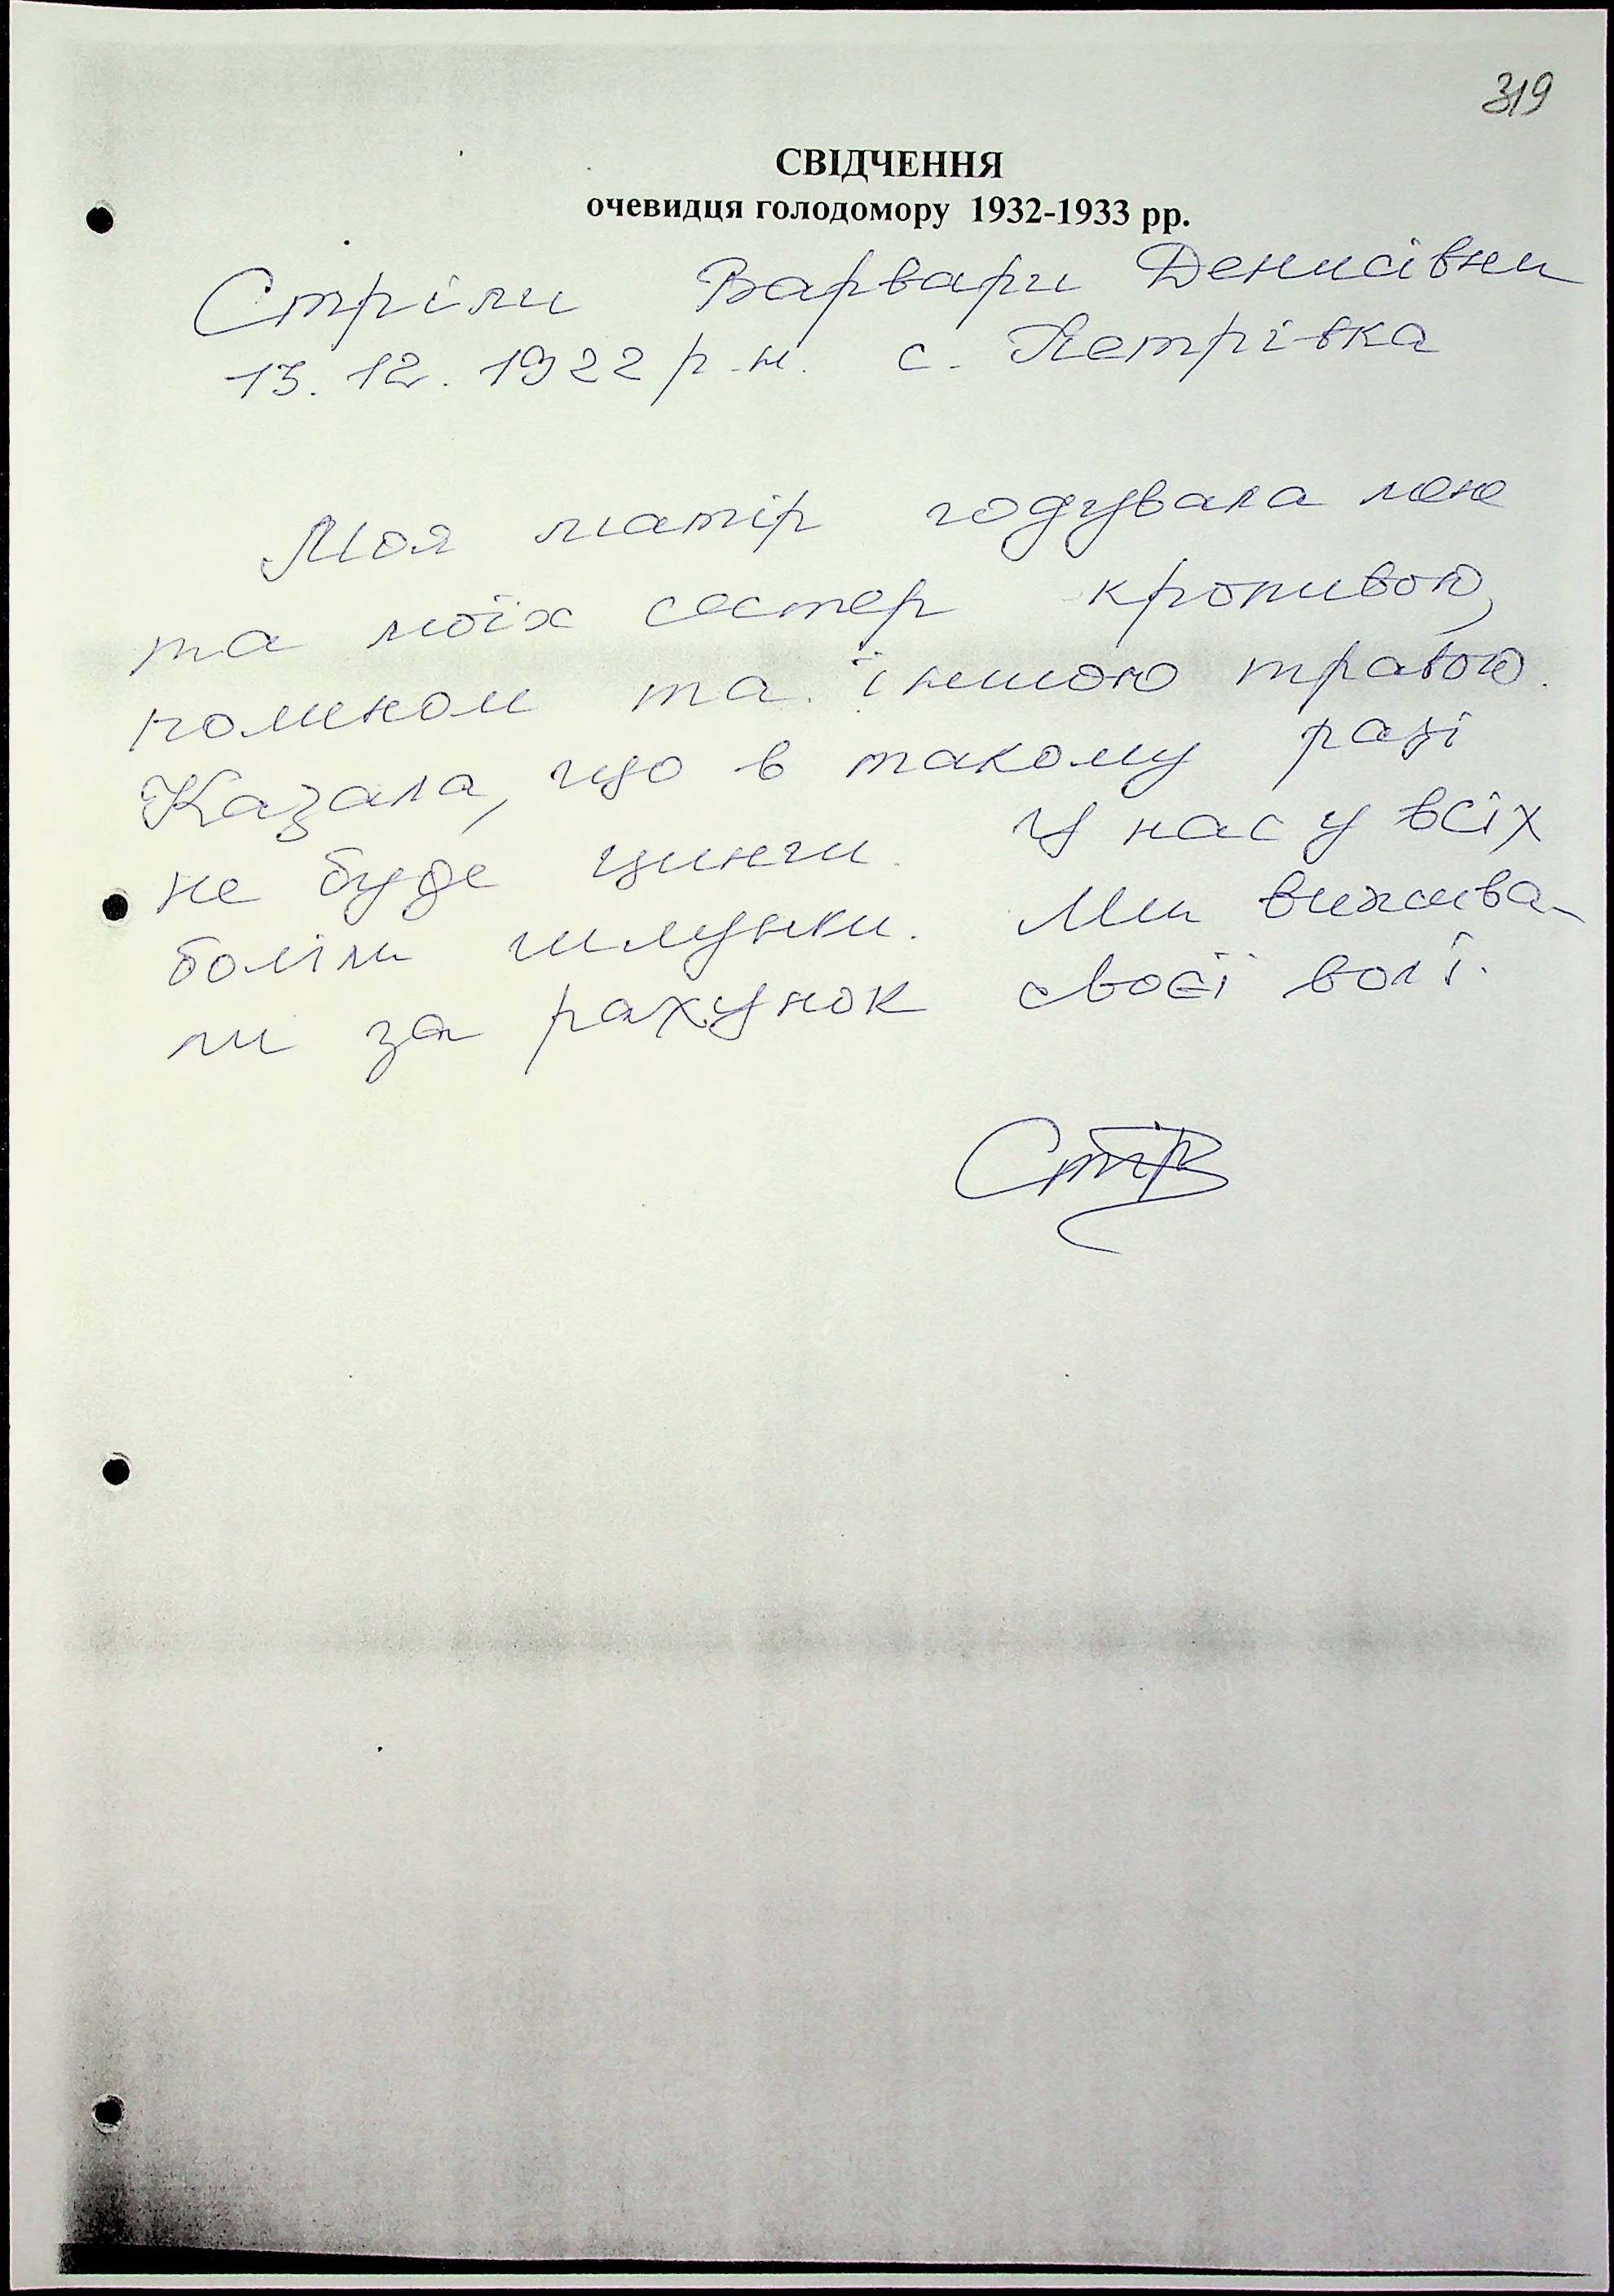 319
СВІДЧЕННЯ
очевидця голодомору 1932-1933 рр.
Стріли Варвари Денисівни
13. 12. 1922 р.н. с. Петрівка
Моя матір годувала мене
та моїх сестер кропивою,
полином та іншою травою.
Казала, що в такому разі
не буде цинги. У нас у всіх
боліли шлунки. Ми вижива-
ли за рахунок своєї волі.